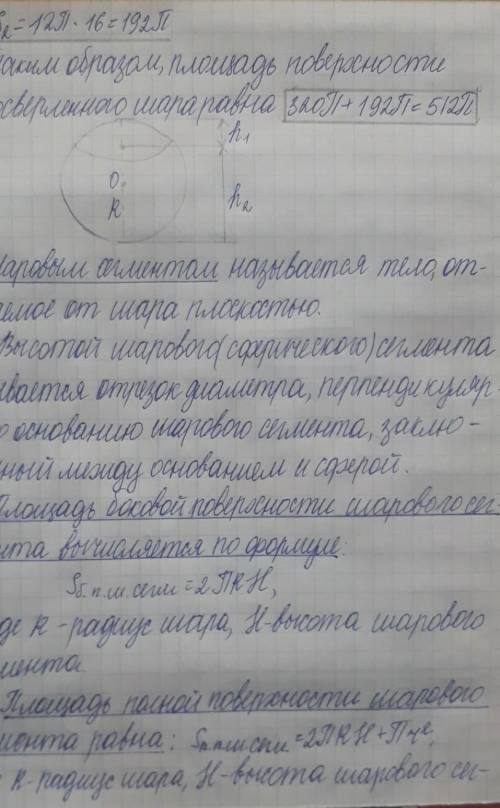 S₂=12П·16=192П
аким образом, площадь поверхности
осверленного шара равна 320П+192П=512П
h₁
O
R
h₂
Шаровым сегментом называется тело, от-
аемое от шара плоскостью.
Высотой шарового(сферического)сегмента
ывается отрезок диаметра, перпендикуляр-
о основанию шарового сегмента, заклю-
ный между основанием и сферой.
Площадь боковой поверхности шарового сег-
нта вычисляется по формуле:
Sб.п.ш.сегм=2ПRH,
де R-радиус шара, H-высота шарового
мента.
Площадь полной поверхности шарового
мента равна: Sп.п.ш.сегм=2ПRH+Пч²,
R-радиус шара, H-высота шарового сег-